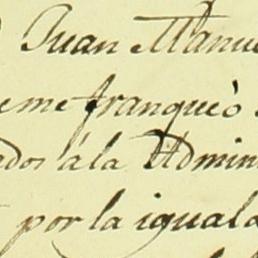 Juan Manue
eme franqueò
ados à la Admin
por la iguala